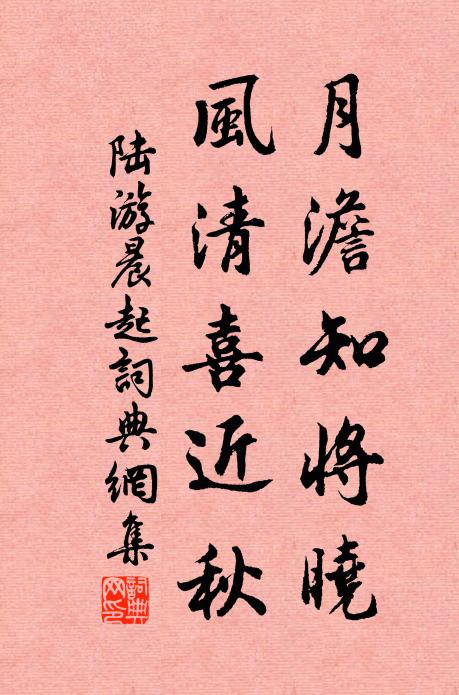 月澹知將曉
風清喜近秋
陆游晨起詞典網集
詞典网印